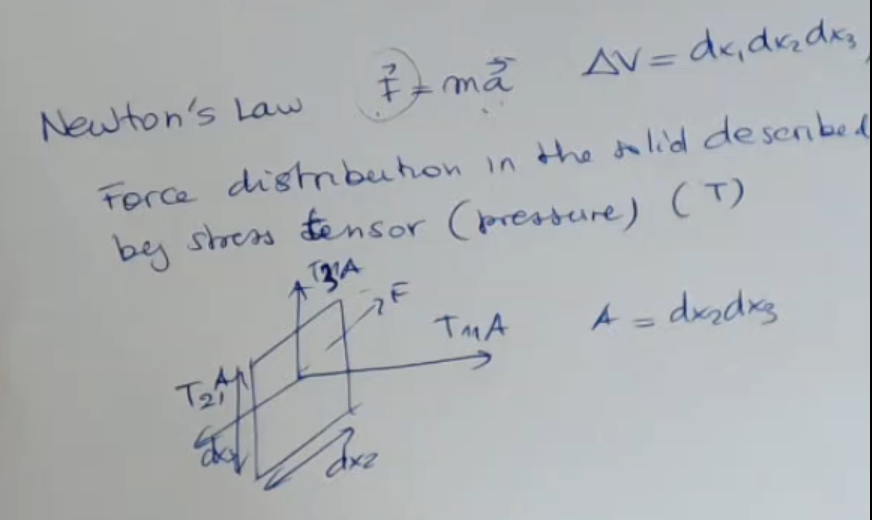 Newton's Law F⃗ = ma⃗ ΔV = dx₁dx₂dx₃
Force distribution in the solid described
by stress tensor (pressure) (T)
T₃₁A
F
T₁₁A
A = dx₂dx₃
T₂₁A
dx₃
dx₂